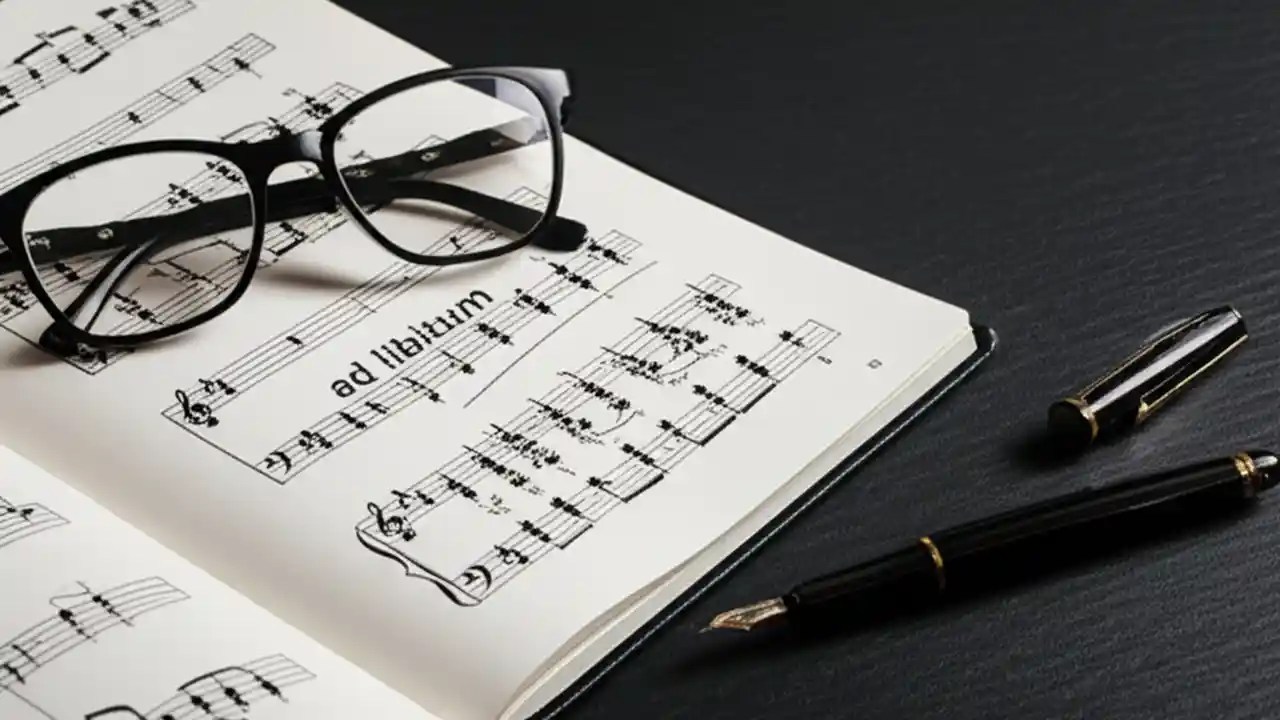 ad libitum